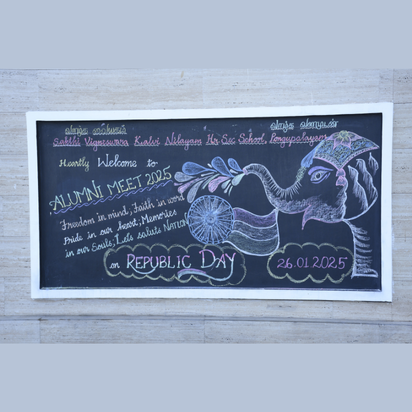 Sakthi Vigneswara Kalvi Nilayam Hr. Sec School, Pongupalayam
Heartly Welcome to
ALUMNI MEET 2025
Freedom in mind, Faith in word
Pride in our heart, Memories
in our Souls; Let's saluts NATION
on REPUBLIC DAY
26.01.2025